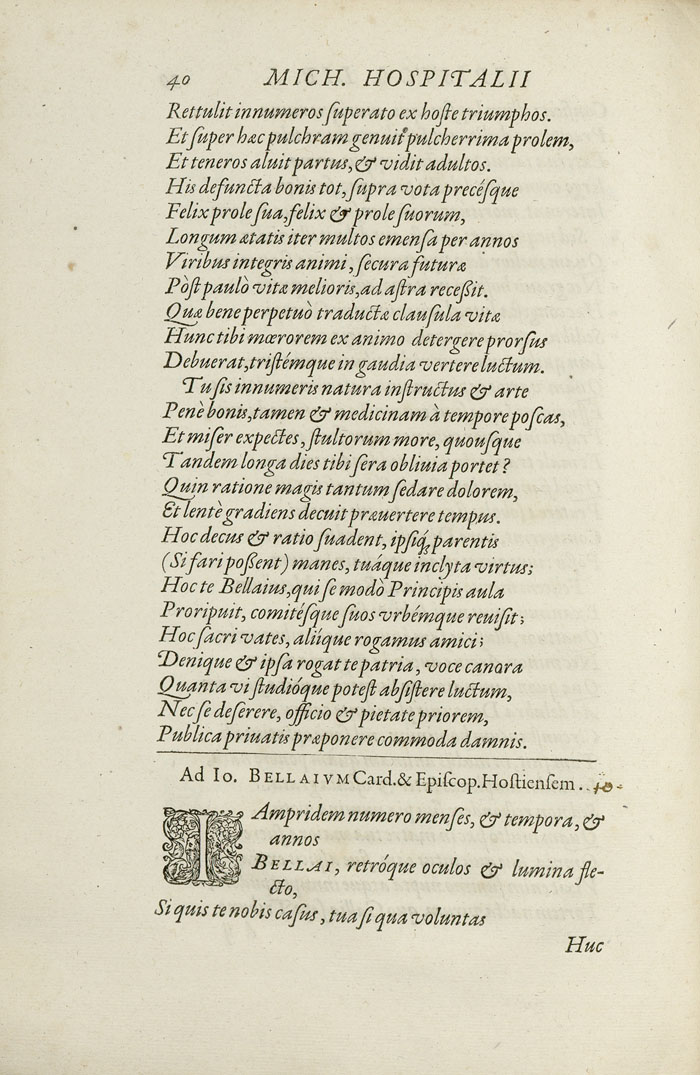 40 MICH. HOSPITALII
Rettulit innumeros ſuperato ex hoſte triumphos.
Et ſuper hæc pulchram genuit pulcherrima prolem,
Et teneros aluit partus, & vidit adultos.
His defuncta bonis tot, ſupra vota precéſque
Felix prole ſua, felix & prole ſuorum,
Longum ætatis iter multos emenſa per annos
Viribus integris animi, ſecura futuræ
Pòſt paulò vitæ melioris, ad aſtra receßit.
Quæ bene perpetuò traductæ clauſula vitæ
Hunc tibi mœrorem ex animo detergere prorſus
Debuerat, triſtémque in gaudia vertere luctum.
Tu ſis innumeris natura inſtructus & arte
Penè bonis, tamen & medicinam à tempore poſcas,
Et miſer expectes, ſtultorum more, quouſque
Tandem longa dies tibi ſera obliuia portet?
Quin ratione magis tantum ſedare dolorem,
Et lentè gradiens decuit præuertere tempus.
Hoc decus & ratio ſuadent, ipſiq́; parentis
(Si fari poßent) manes, tuáque inclyta virtus;
Hoc te Bellaius, qui ſe modò Principis aula
Proripuit, comitéſque ſuos vrbémque reuiſit;
Hoc ſacri vates, aliíque rogamus amici;
Denique & ipſa rogat te patria, voce canora
Quanta vi ſtudióque poteſt abſiſtere luctum,
Nec ſe deſerere, officio & pietate priorem,
Publica priuatis præponere commoda damnis.
Ad Io. BELLAIVM Card. & Epiſcop. Hoſtienſem.
IAmpridem numero menſes, & tempora, &
annos
BELLAI, retróque oculos & lumina fle-
cto,
Si quis te nobis caſus, tua ſi qua voluntas
Huc